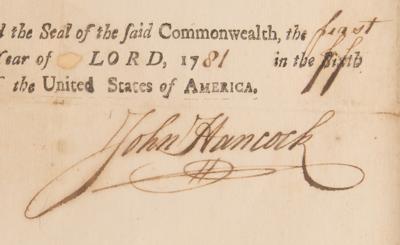 d the Seal of the ſaid Commonwealth, the first
Year of LORD, 1781 in the Sixth
the United States of AMERICA.
John Hancock